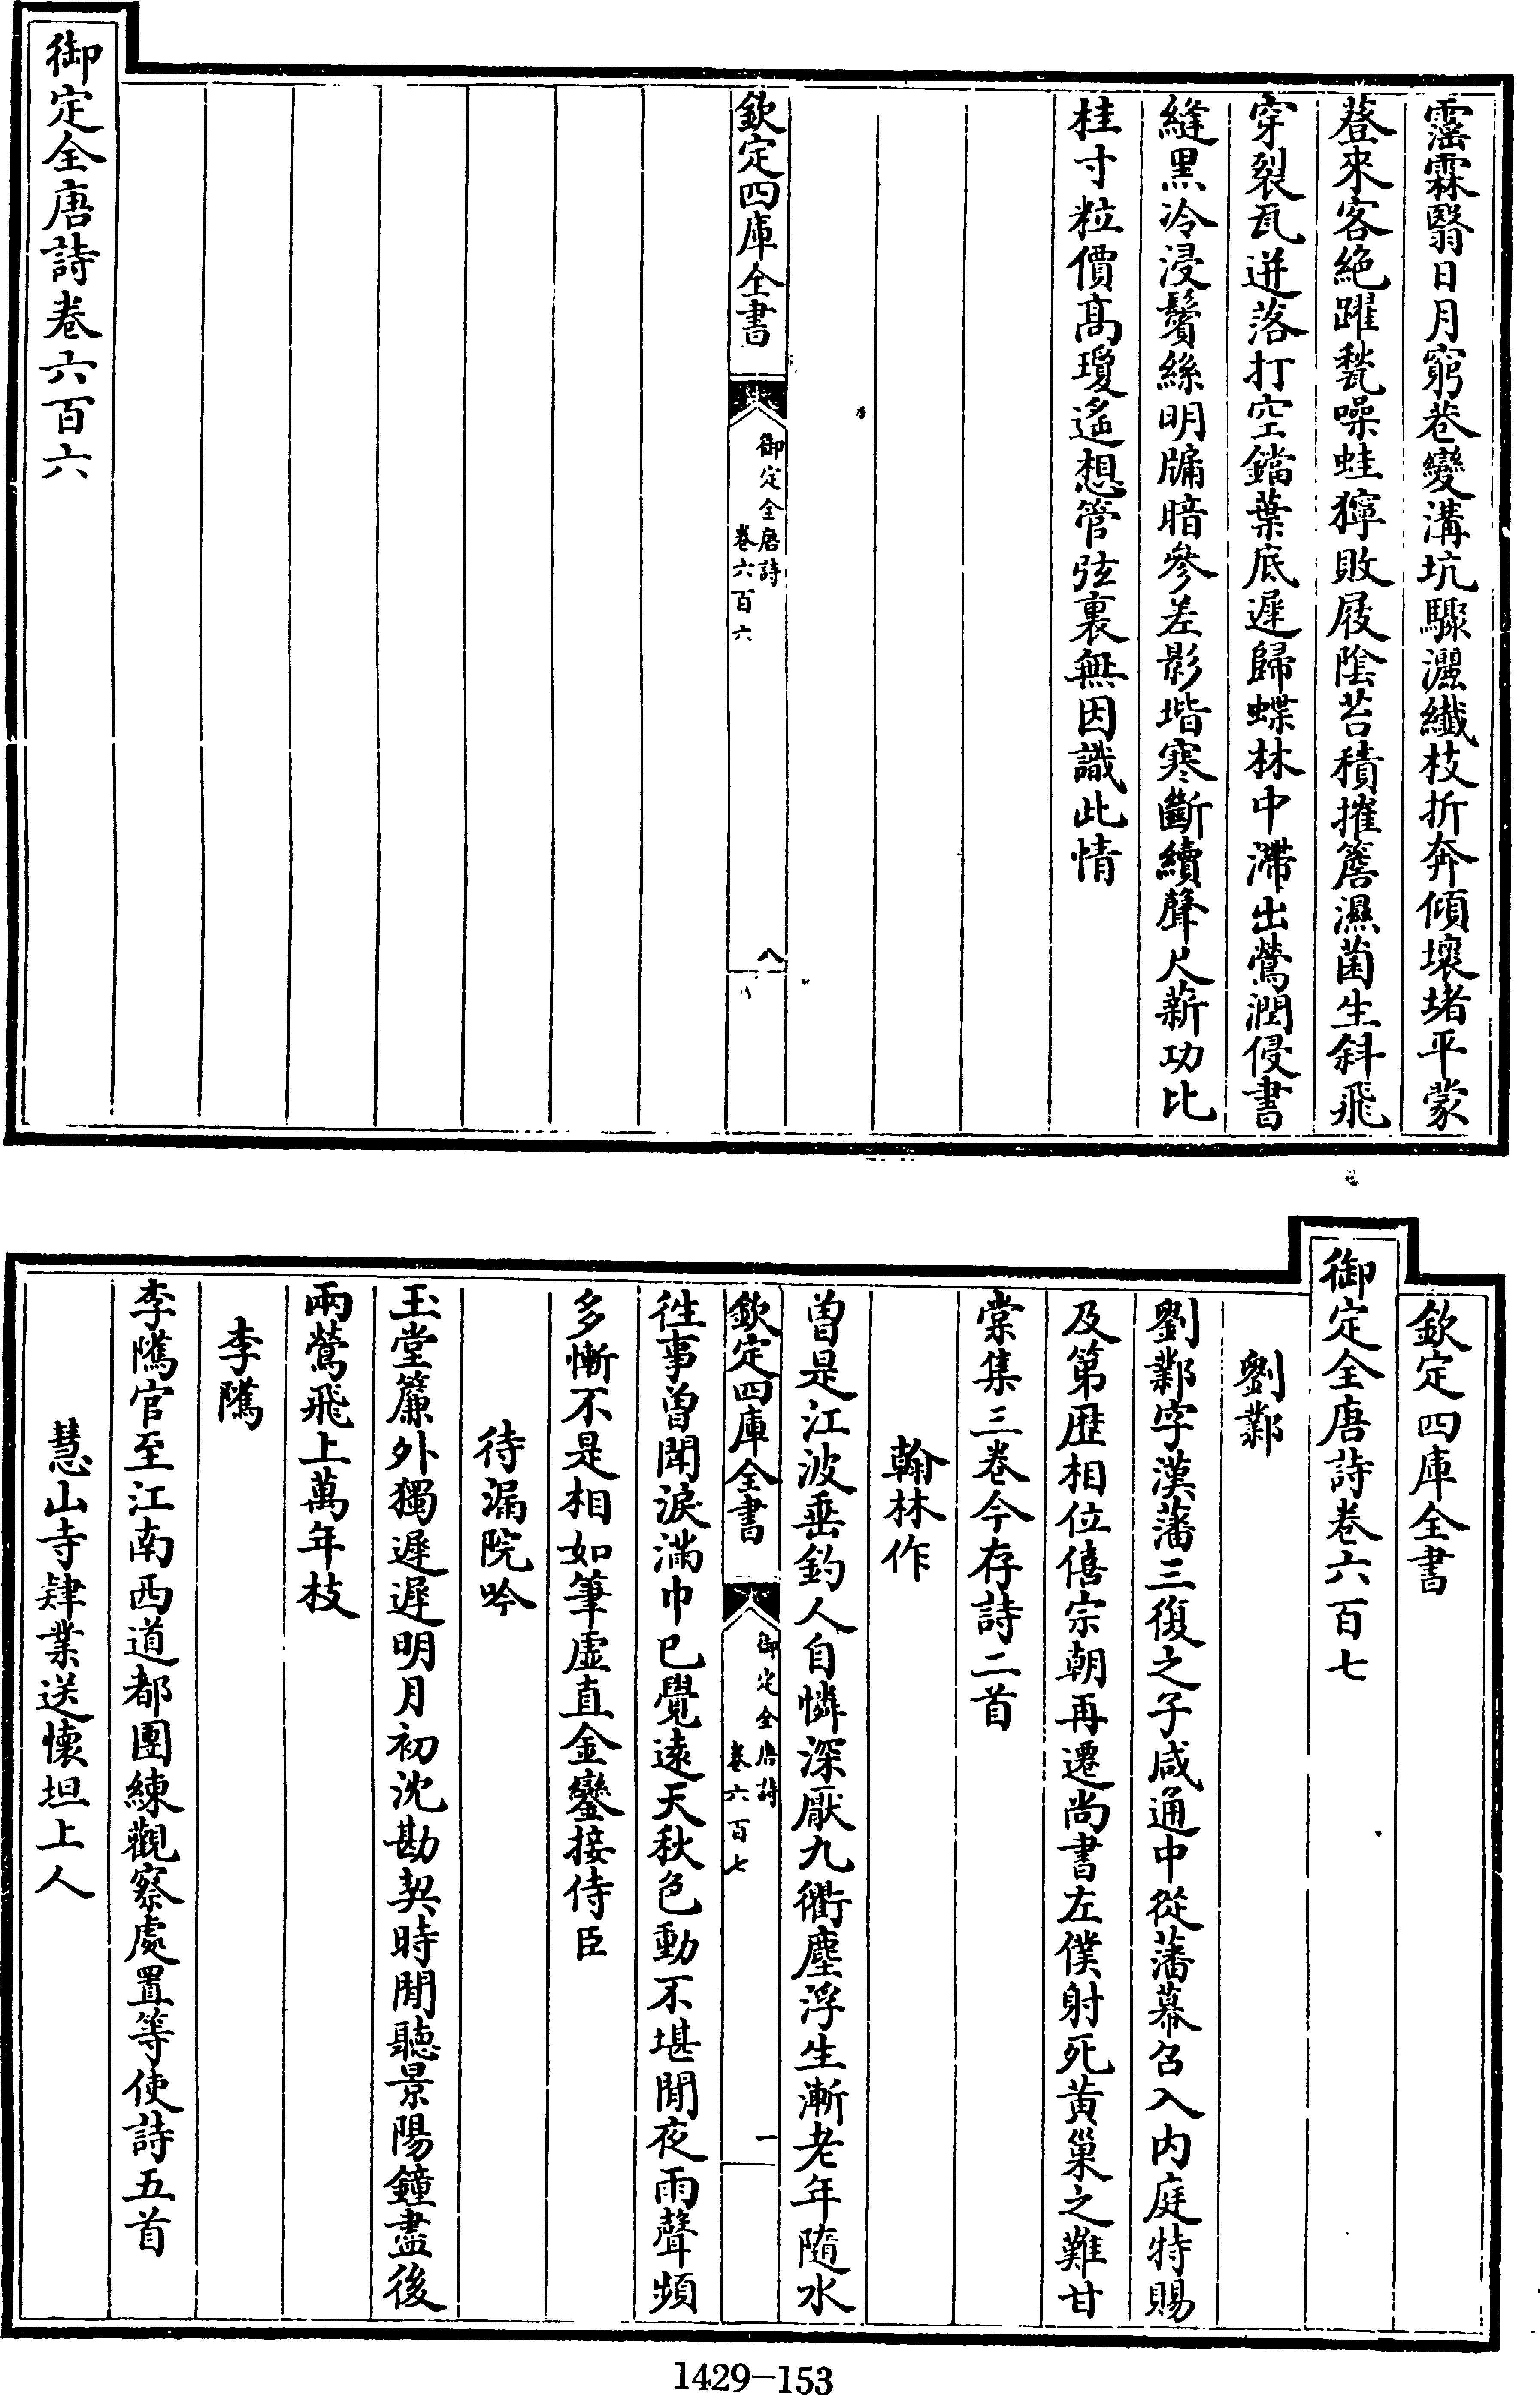 霪霖翳日月窮巷變溝坑驟灑纎枝折奔傾壞堵平蒙
簦來客絶躍甃噪蛙獰敗屐陰苔積摧簷濕菌生斜飛
穿裂瓦迸落打空鐺葉底遲歸蝶林中滯出鶯潤侵書
縫黑冷浸鬢絲明牖暗參差影堦寒斷續聲尺薪功比
桂寸粒價髙瓊遙想管弦裏無因識此情
欽定四庫全書
御定全唐詩
卷六百六
八
御定全唐詩卷六百六
欽定四庫全書
御定全唐詩卷六百七
劉鄴
劉鄴字漢藩三復之子咸通中從藩幕召入内庭特賜
及第歴相位僖宗朝再遷尚書左僕射死黄巢之難甘
棠集三卷今存詩二首
翰林作
曽是江波垂釣人自憐深厭九衢塵浮生漸老年隨水
欽定四庫全書
御定全唐詩
卷六百七
一
徃事曽聞淚滿巾已覺逺天秋色動不堪閒夜雨聲頻
多慚不是相如筆虚直金鑾接侍臣
待漏院吟
玉堂簾外獨遲遲明月初沈勘契時閒聽景陽鐘盡後
兩鶯飛上萬年枝
李隲
李隲官至江南西道都團練觀察處置等使詩五首
慧山寺肄業送懷坦上人
1429-153